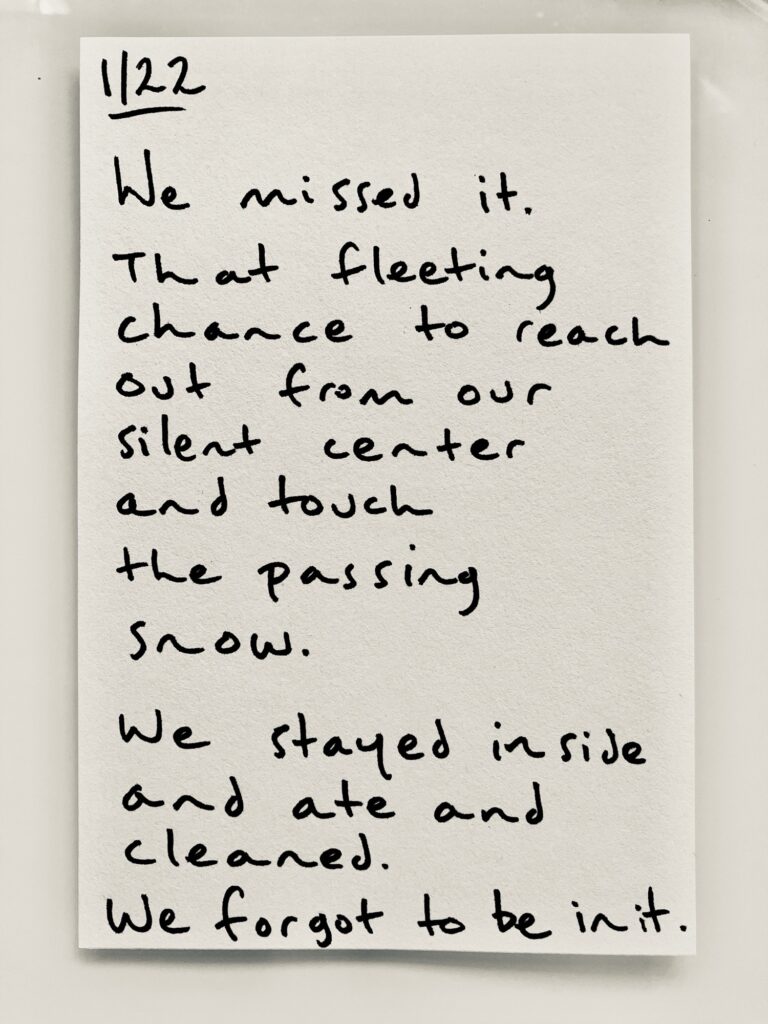 1/22
We missed it.
That fleeting
chance to reach
out from our
silent center
and touch
the passing
snow.
We stayed inside
and ate and
cleaned.
We forgot to be in it.